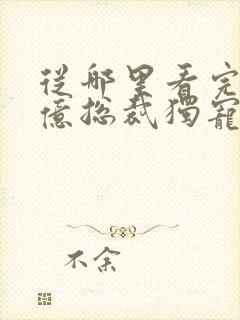 從哪里看完
億總裁獨寵
不余